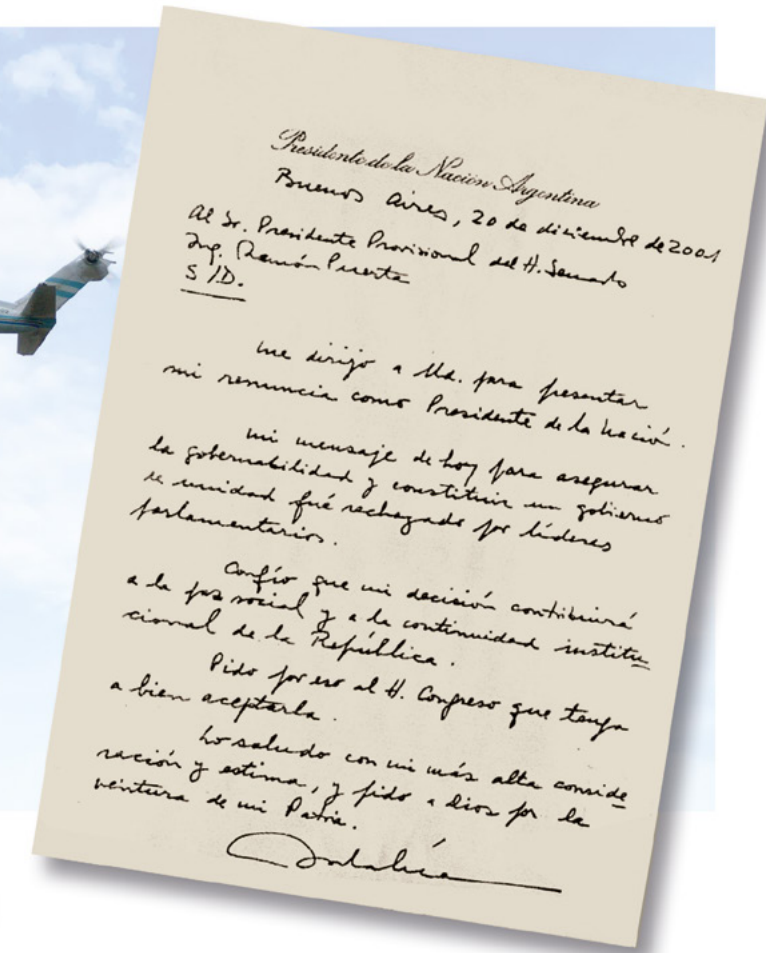 Presidente de la Nación Argentina
Buenos Aires, 20 de diciembre de 2001
Al Sr. Presidente Provisional del H. Senado
Ing. Ramón Puerta
S / D.
me dirijo a Ud. para presentar
mi renuncia como Presidente de la Nación.
mi mensaje de hoy para asegurar
la gobernabilidad y constituir un gobierno
de unidad fué rechazado por líderes
parlamentarios.
Confío que mi decisión contribuirá
a la paz social y a la continuidad institu
cional de la República.
Pido por eso al H. Congreso que tenga
a bien aceptarla.
Lo saludo con mi más alta conside
ración y estima, y pido a Dios por la
ventura de mi Patria.